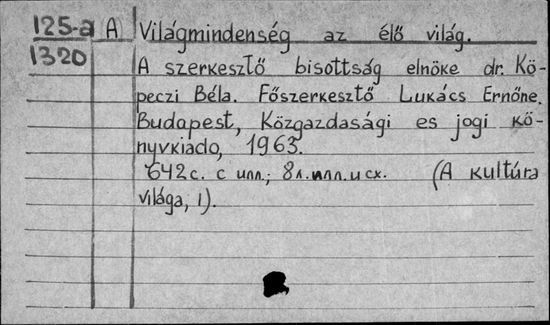 125-a A Világmindenség az élő világ.
1320
A szerkesztő bisottság elnöke dr. Kö-
peczi Béla. Főszerkesztő Lukács Ernőne.
Budapest, Közgazdasági es jogi kö-
nyvkiado, 1963.
642 с. с илл.; 8л.илл.и сх. (A kultúra
világa, I).